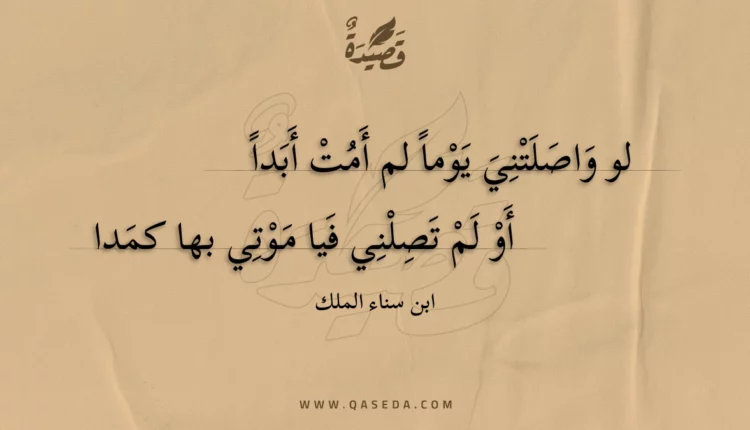 قَصِيدَةٌ
لو وَاصَلَتْنِيَ يَوْماً لم أَمُتْ أَبَداً
أَوْ لَمْ تَصِلْنِي فَيا مَوْتِي بها كمَدا
ابن سناء الملك
WWW.QASEDA.COM